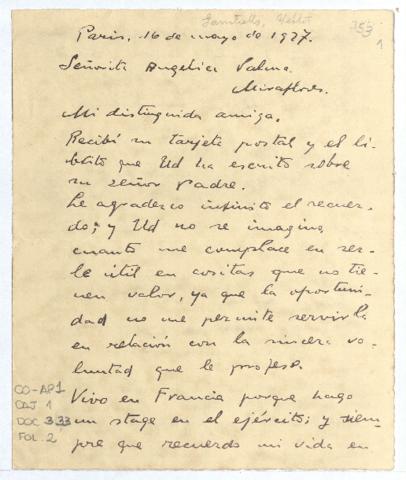 353
1
Paris, 16 de mayo de 1927.
Señorita Angelica Palma.
Miraflores.
Mi distinguida amiga.
Recibí su tarjeta postal y el li-
brito que Ud ha escrito sobre
su señor Padre.
Le agradezco infinito el recuer-
do; y Ud no se imagina
cuanto me complace en ser-
le útil en cositas que no tie-
nen valor, ya que la oportuni-
dad no me permite servirla
en relación con la sincera vo-
luntad que le profeso.
Vivo en Francia porque hago
un stage en el ejército; y siem-
pre que recuerdo mi vida en
CO-AP1
CAJ 1
DOC 353
FOL. 2